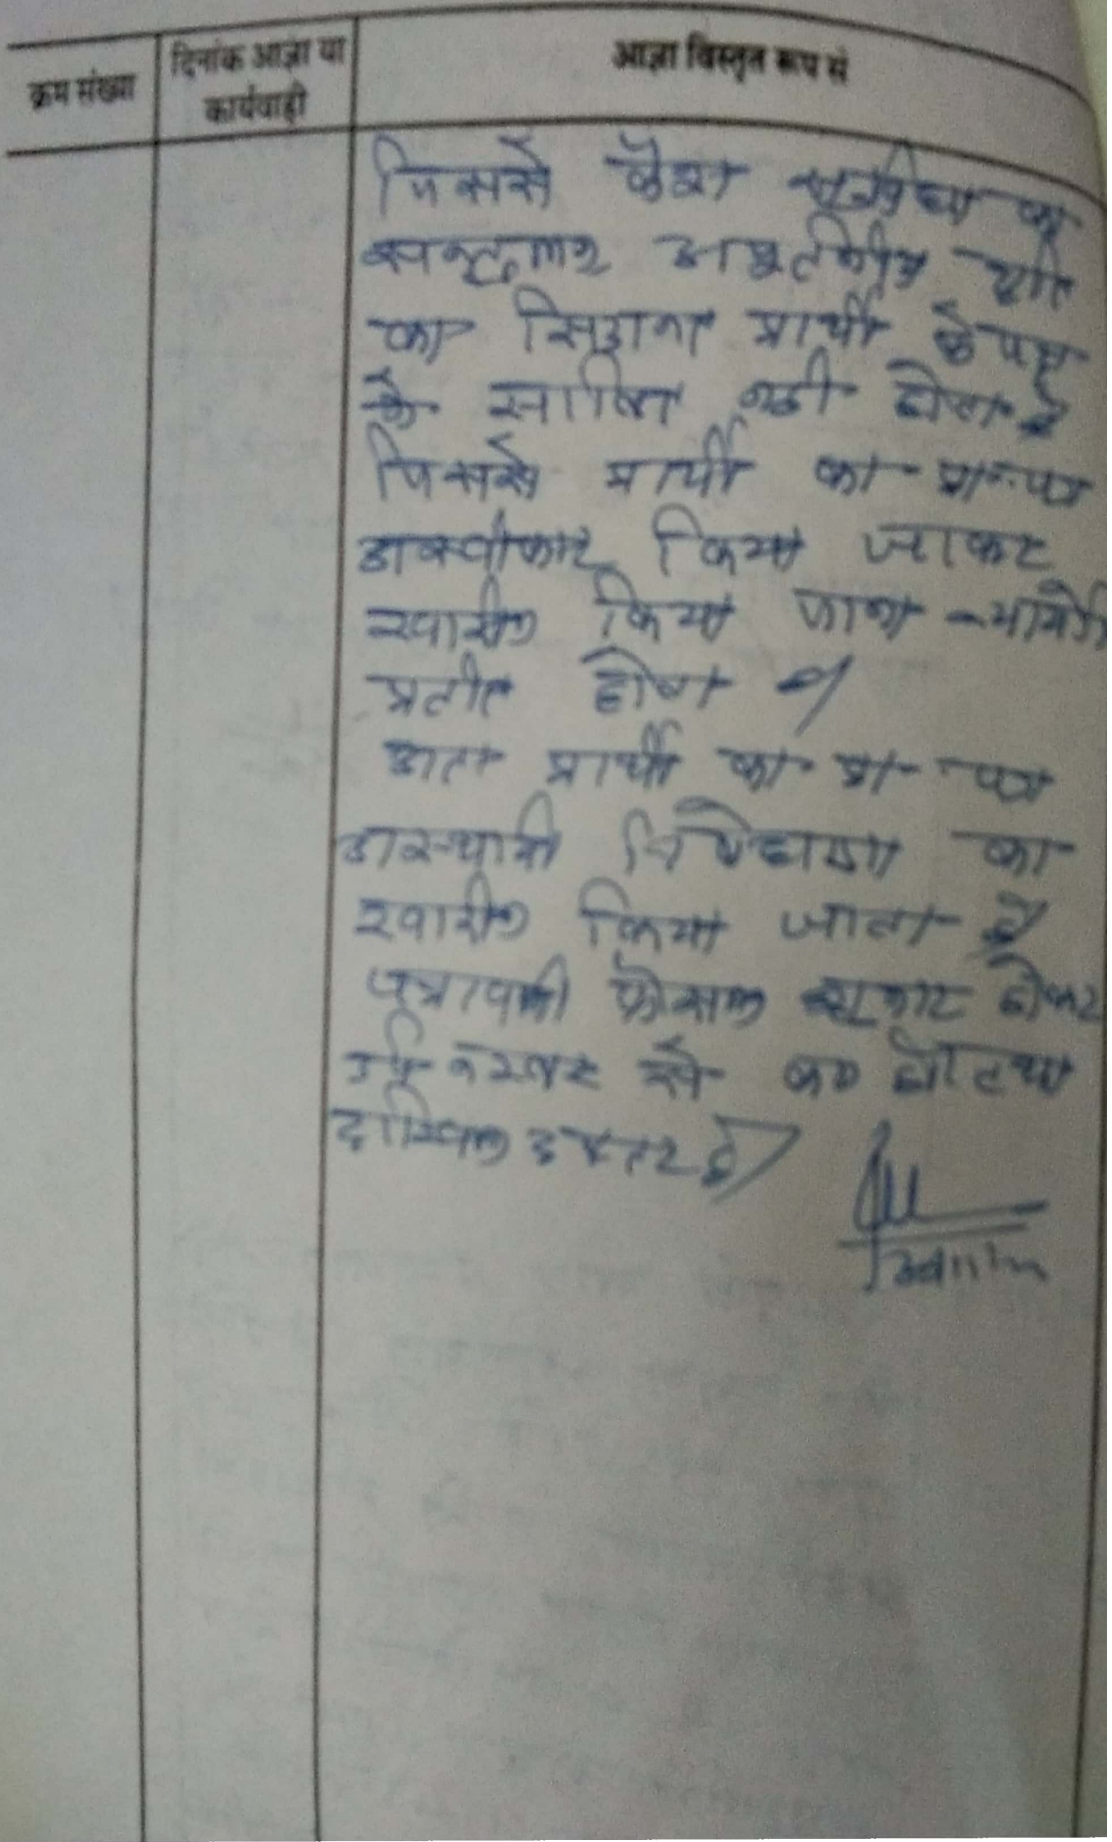 क्रम संख्या
दिनांक आज्ञा या
कार्यवाही
आज्ञा विस्तृत रूप से
जिससे सुविधा का
सन्तुलन अपूर्तनीय क्षति
का सिद्धान्त प्रार्थी के पक्ष
के साबित नही होता है
जिससे प्रार्थी का प्रा. पत्र
अस्वीकार किया जाकर
खारीज किया जाना
प्रतीत होता
अतः प्रार्थी का प्रा पत्र
अस्थायी निषेधाज्ञा का
खारीज किया जाता है
पत्रावली फैसल शुमार होकर
नम्बर से कम हो तथा
दाखिल दफ्तर हो